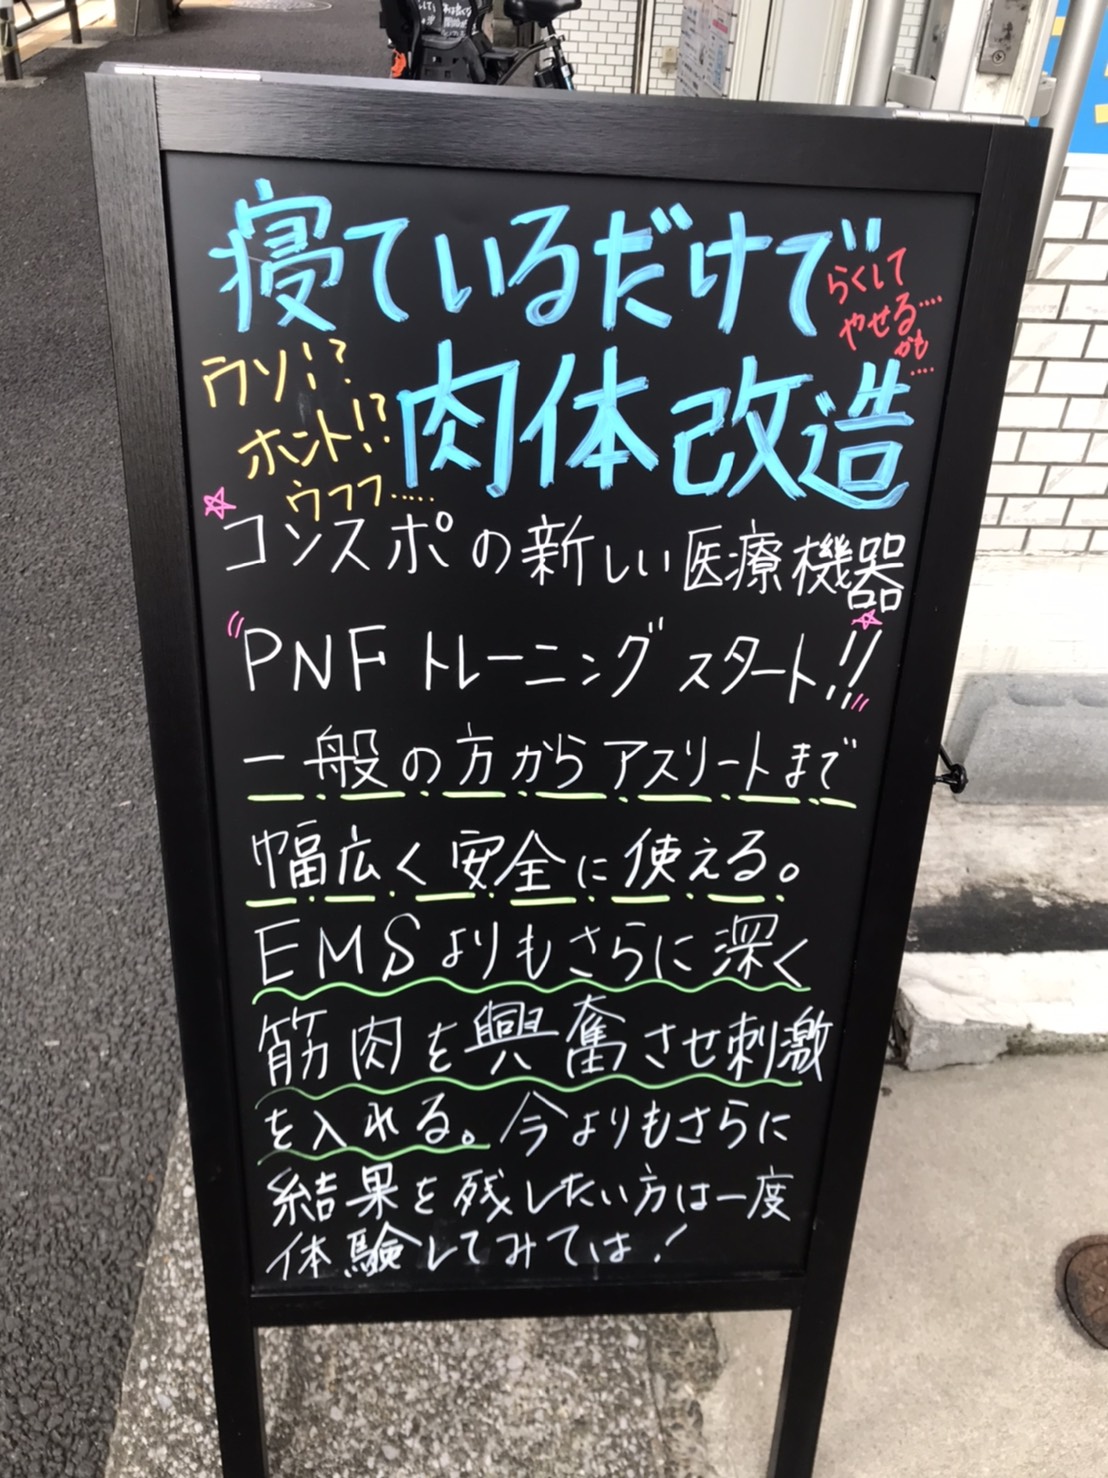 寝ているだけで
らくして
やせる....
かも....
ウソ!?
ホント!?
ウフフ.....
肉体改造
コンスポの新しい医療機器
"PNFトレーニングスタート!!"
一般の方からアスリートまで
幅広く安全に使える。
EMSよりもさらに深く
筋肉を興奮させ刺激
を入れる。今よりもさらに
結果を残したい方は一度
体験してみては!